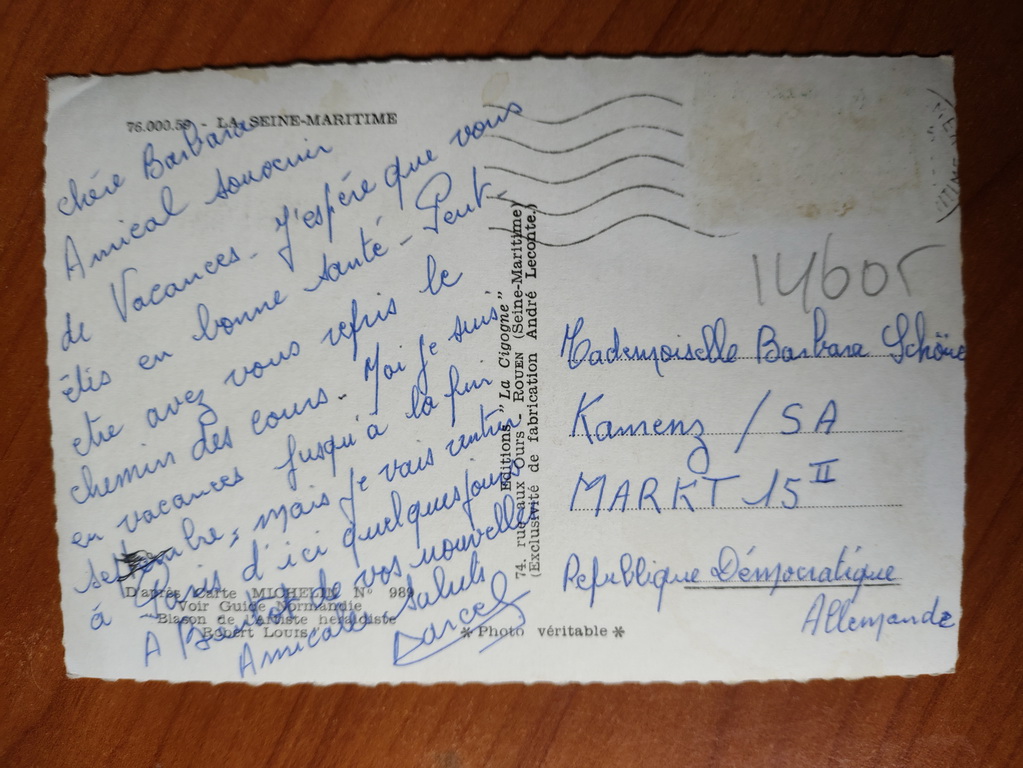 76.000.59 - LA SEINE-MARITIME
chère Barbara
Amical souvenir
de Vacances - J'espère que vous
êtes en bonne santé - Peut-
etre avez vous repris le
chemin des cours - Moi je suis
en vacances jusqu'à la fin
septembre, mais je vais rentrer
à Paris d'ici quelques jours
A Bientot de vos nouvelles
Amicales saluts
Marcel
D'après Carte MICHELIN N° 989
Voir Guide Normandie
Blason de l'Artiste héraldiste
Robert Louis
Editions "La Cigogne"
74, rue aux Ours - ROUEN (Seine-Maritime)
(Exclusivité de fabrication André Leconte.)
* Photo véritable *
14605
Mademoiselle Barbara Schöne
Kamenz / SA
MARKT 15 II
Republique Démocratique
Allemande